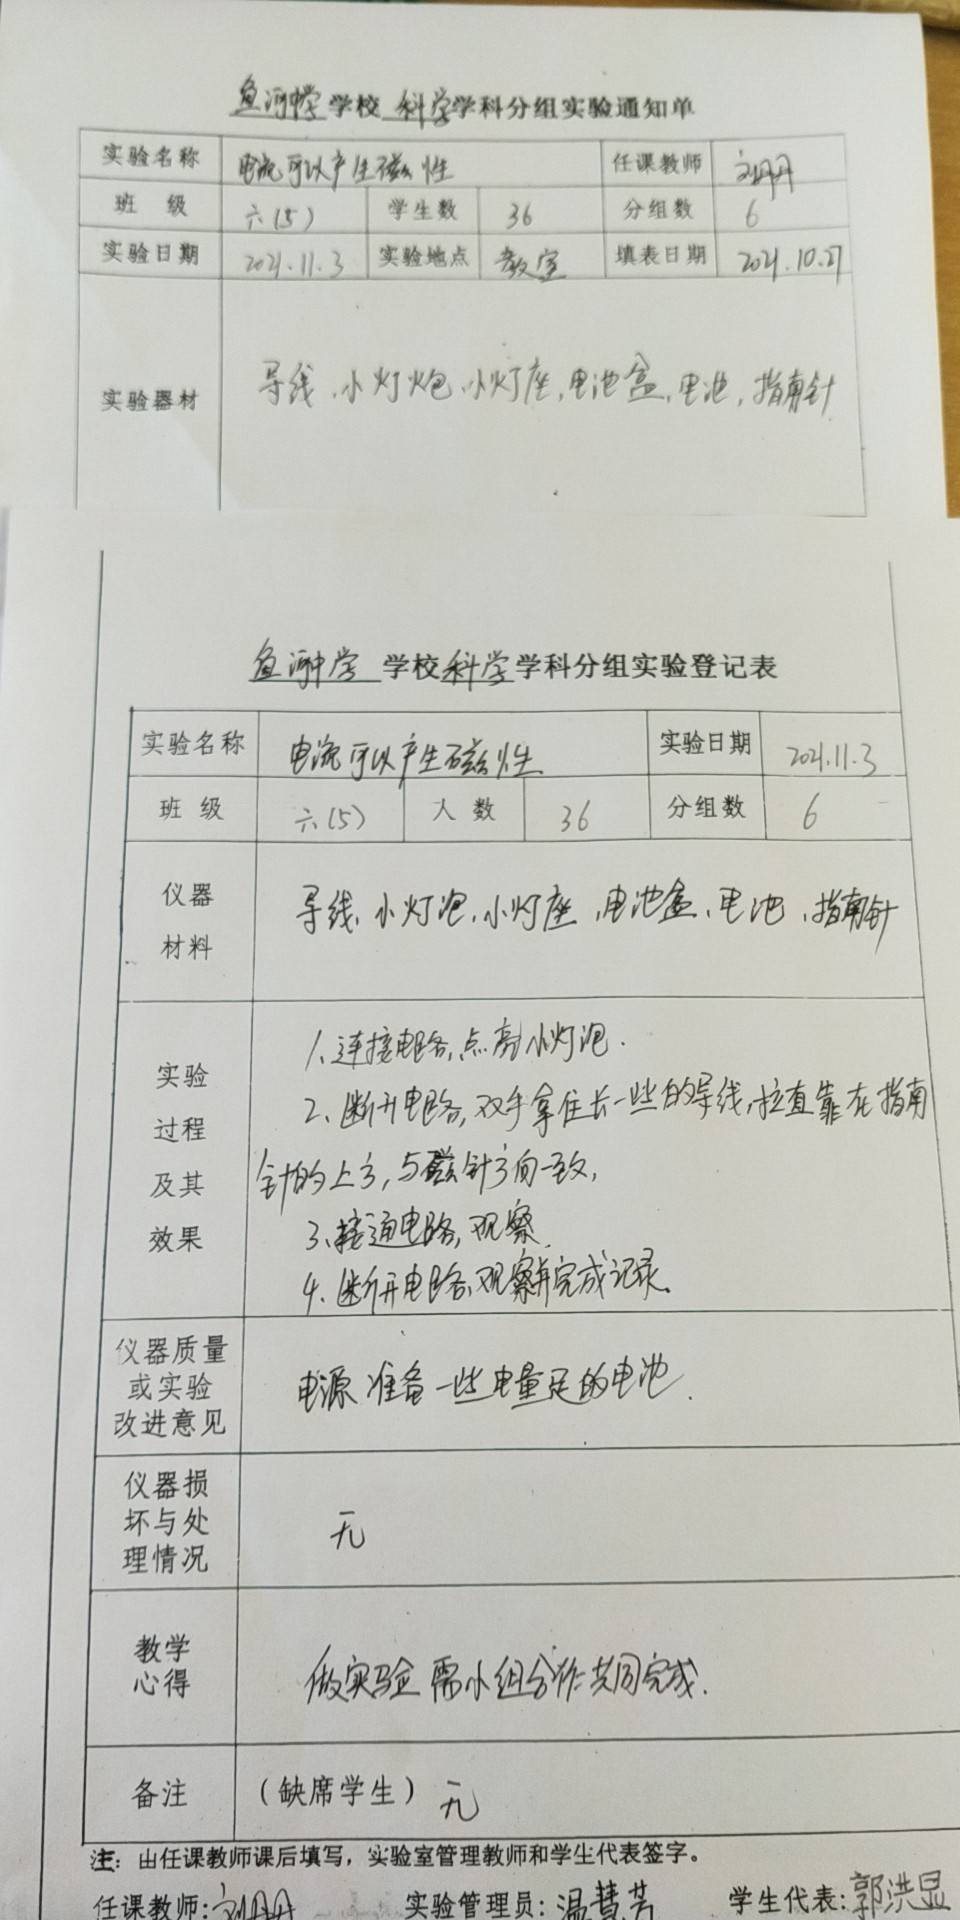 鱼河中学 学校 科学 学科分组实验通知单
实验名称 电流可以产生磁性 任课教师 刘丹丹
班 级 六(5) 学生数 36 分组数 6
实验日期 2021.11.3 实验地点 教室 填表日期 2021.10.27
实验器材 导线、小灯炮、小灯座、电池盒、电池、指南针
鱼河中学 学校 科学 学科分组实验登记表
实验名称 电流可以产生磁性 实验日期 2021.11.3
班 级 六(5) 人 数 36 分组数 6
仪器
材料
导线、小灯泡、小灯座、电池盒、电池、指南针
实验
过程
及其
效果
1、连接电路,点亮小灯泡.
2、断开电路,双手拿住长一些的导线,拉直靠在指南
针的上方,与磁针方向一致,
3、接通电路,观察.
4、断开电路,观察并完成记录。
仪器质量
或实验
改进意见
电源准备一些电量足的电池.
仪器损
坏与处
理情况
无
教学
心得
做实验需小组合作共同完成.
备注 (缺席学生) 无
注: 由任课教师课后填写,实验室管理教师和学生代表签字。
任课教师:刘丹丹 实验管理员:温慧芳 学生代表:郭洪显